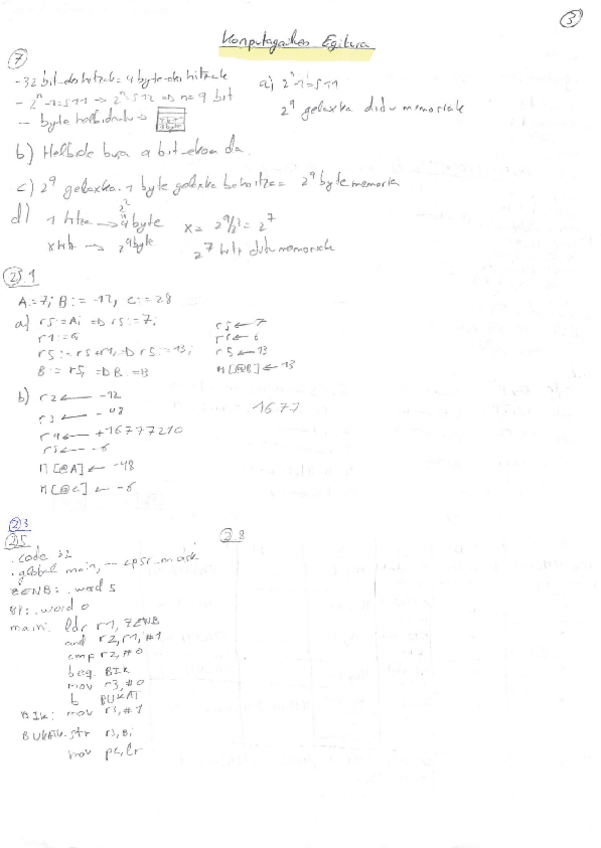 3
Konputagailuen Egitura
7
- 32 bit-eko hitzak = 4 byte-eko hitzak
- 2^n - 1 = 511 → 2^n = 512 ⇒ n = 9 bit
- byte helbideratu →
a) 2^n - 1 = 511
2^9 gelaxka ditu memoriak
b) Helbide busa 9 bit-ekoa da.
c) 2^9 gelaxka · 1 byte gelaxka bakoitza = 2^9 byte memoria
d) 1 hitza → 4 byte
x hitz → 2^9 byte
x = 2^9/2^2 = 2^7
2^7 hitz ditu memoriak
2.1
A := 7; B := -12, C := 28
a) r5 := A; ⇒ r5 := 7;
r1 := 6
r5 := r5 + r1; ⇒ r5 := 13;
B := r5, ⇒ B := 13
r5 ← 7
r1 ← 6
r5 ← 13
M[@B] ← 13
b) r2 ← -12
r3 ← -48
r4 ← +16777210
r5 ← -6
M[@A] ← -48
M[@C] ← -6
1677
2.3
2.5
3.8
.code 32
.global main, __cpsr_mask
ZENB: .word 5
BI: .word 0
main: ldr r1, ZENB
and r2, r1, #1
cmp r2, #0
beq BIK
mov r3, #0
b BUKAT
BIK: mov r3, #1
str r3, BI
mov pc, lr